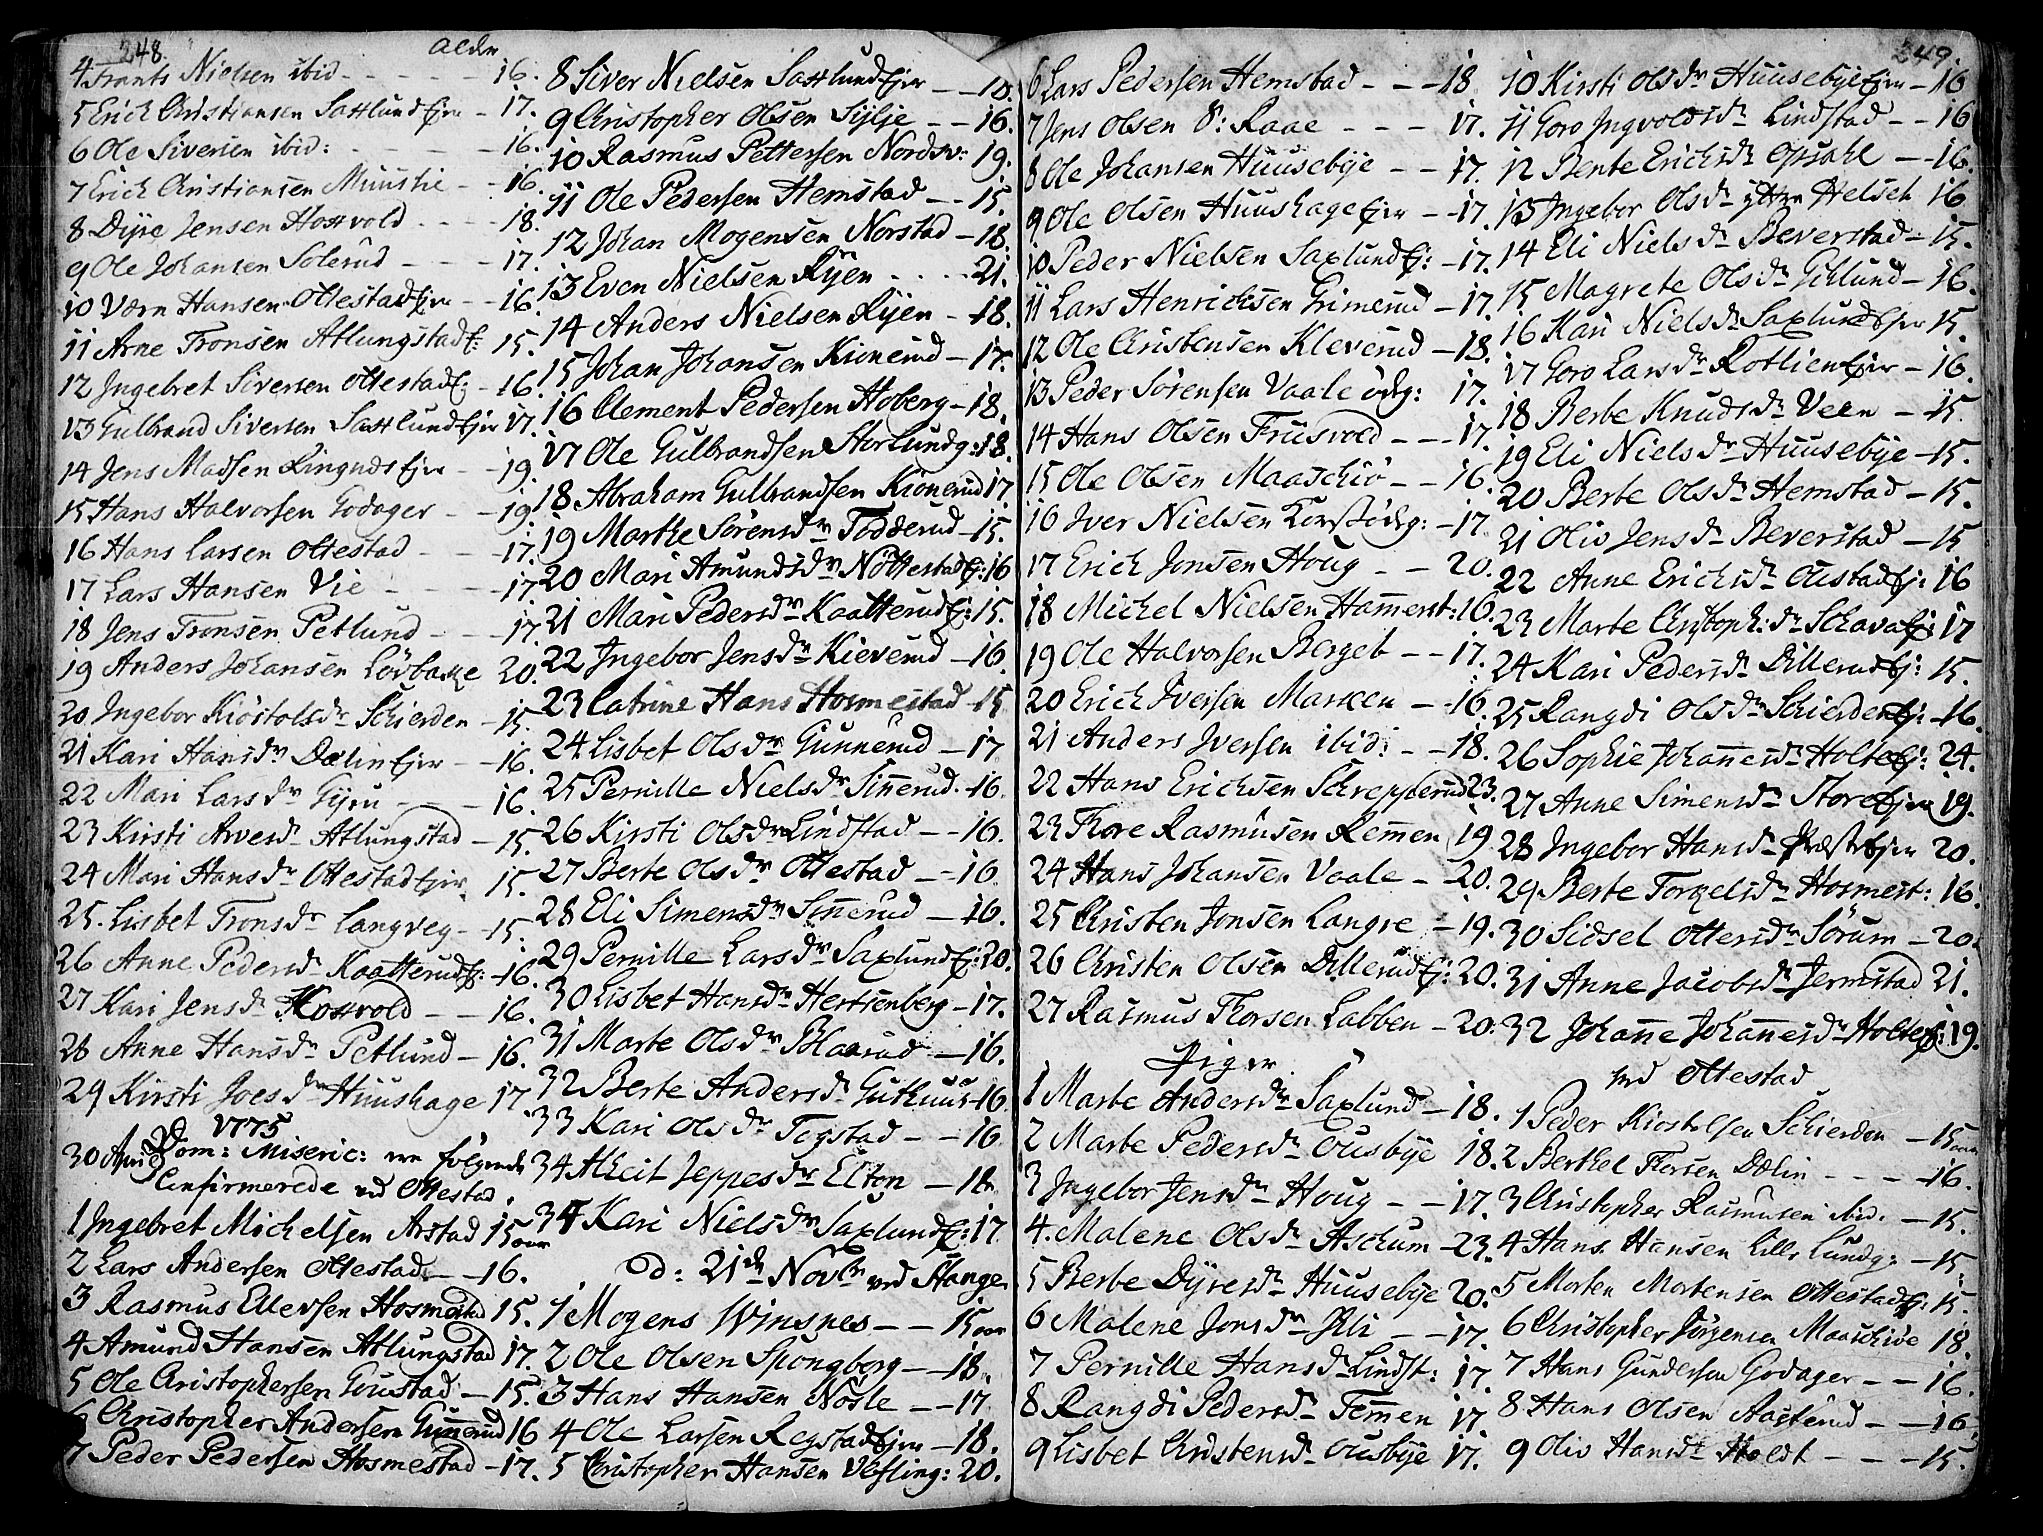 248.
Alder
4 Frants Nielsen ibid - - - - - 16.
5 Erich Christiansen Saxlund Eier - 17.
6 Ole Siversen ibid: - - - - 16.
7 Erich Christiansen Muustie - - 16.
8 Dyre Jensen Hosvold - - - - 18.
9 Ole Johansen Solerud - - - - 17.
10 Hansen Ottestad Eier - - 16.
11 Arne Tronsen Atlungstad E: 15.
12 Ingebret Siversen Ottestad E: - 16.
13 Gulbrand Siversen Saxlund Eier 17.
14 Jens Madsen Eier - - 19.
15 Hans Halvorsen Godager - - 19.
16 Hans Larsen Ottestad - - - 17.
17 Lars Hansen Vie - - - - 17
18 Jens Tronsen Petlund - - - 17
19 Anders Johansen Lövbakke 20.
20 Ingebor Kiöstolsdr Schierden - 15.
21 Kari Hansdr Dælin Eier - - 16.
22 Mari Larsdr Gyru - - - 16.
23 Kirsti Arvesdr Atlungstad - 15.
24 Mari Hansdr Ottestad Eier 15.
25. Lisbet Tronsdr Langveg - 15.
26 Anne Pedersdr Kaatterud E: - 16.
27 Kari Jensdr Hosvold - - 16.
28 Anne Hansdr Petlund - 16.
29 Kirsti Joesdr Huushage 17
1775
30 April Dom: Miseric: ere følgende
Confirmerede ved Ottestad.
1 Ingebret Michelsen Arstad 15 aar
2 Lars Andersen Ottestad - - 16.
3 Rasmus Ellevsen Hosmestad 15.
4 Amund Hansen Atlungstad 17.
5 Ole Christophersen Goustad - 15.
6 Christopher Andersen Gunnerud 16
7 Peder Pedersen Hosmestad - 17.
8 Siver Nielsen Saxlund Eier - - 18.
9 Christopher Olsen Sylje - - 16.
10 Rasmus Pettersen Nordsv: 19.
11 Ole Pedersen Hemstad - - 15.
12 Johan Mogensen Norstad - 18.
13 Even Nielsen Ryen - - - - 21.
14 Anders Nielsen Ryen - 18.
15 Johan Johansen Kionerud - 17.
16 Clement Pedersen Hoberg - 18.
17 Ole Gulbrandsen Storlundg: 18.
18 Abraham Gulbrandsen Kionerud 17.
19 Marthe Sörensdr Todderud - 15.
20 Mari Amundsdr Nöttestad E: 16
21 Mari Pedersdr Kaatterud E: 15.
22 Ingebor Jensdr Kieverud - 16.
23 Catrine Hans Hosmestad - 15
24 Lisbet Olsdr Gunnerud - 17
25 Pernille Nielsdr Sinnerud - 16.
26 Kirsti Olsdr Lindstad - - 16.
27 Berte Olsdr Ottestad - - 16
28 Eli Simensdr Sinnerud - 16.
29 Pernille Larsdr Saxlund E: 20.
30 Lisbet Hansdr Hertsenberg - 17.
31 Marte Olsdr Blaarud - 16.
32 Berte Andersdr Guthuus - 16.
33 Kari Olsdr Togstad - - 16
34 Alheit Jeppesdr Elton - 18.
34 Kari Nielsdr Saxlund E: 17
d: 21de Novbr ved Stange
1 Mogens Winsnes - - 15 aar
2 Ole Olsen Spongberg - - 18.
3 Hans Hansen Nösle - - 17
4 Ole Larsen Rogstad Eier - 18.
5 Christopher Hansen Vefling: 20.
249.
6 Lars Pedersen Hemstad - - - 18
7 Jens Olsen Ö: Raae - - - 17.
8 Ole Johansen Huusebye - - 17.
9 Ole Olsen Huushage Eier - - 17
10 Peder Nielsen Saxlund E: - 17.
11 Lars Henrichsen Grimerud - 17.
12 Ole Christensen Kleverud - 18.
13 Peder Sörensen Vaale ödeg: 17.
14 Hans Olsen Friisvold - - - 17.
15 Ole Olsen Maaschiö - - 16.
16 Iver Nielsen Korsödeg: - 17
17 Erich Jonsen Houg - - 20.
18 Michel Nielsen Hamerst: 16.
19 Ole Halvorsen Berget - - 17.
20 Erich Iversen Marken - - 16
21 Anders Iversen ibid: - - 18.
22 Hans Erichsen Schrepperud 23.
23 Thore Rasmusen Remen 19
24 Hans Johansen Vaale - 20.
25 Christen Jonsen Langre - 19.
26 Christen Olsen Dillerud E: 20.
27 Rasmus Thorsen Labben - 20.
Piger
1 Marte Andersdr Saxlund - 18.
2 Marte Pedersdr Ousbye 18.
3 Ingebor Jensdr Houg - - 17.
4. Malene Olsdr Aschum - 23.
5 Berte Dyresdr Huusebye 20.
6 Malene Jonsdr Ili - - 17.
7 Pernille Hansdr Lindst: 17.
8 Rangdi Pedersdr Temmen 17
9 Lisbet Christensdr Ousbye 17.
10 Kirsti Olsdr Huusebye Eier - 16
11 Goro Ingvoldsdr Lindstad - - 16
12 Bente Erichsdr Opsahl - - 16.
13 Ingebor Olsdr ytre Helseth 16
14 Eli Nielsdr Beverstad - 15.
15 Magrete Olsdr Ichlund - 16.
16 Kari Nielsdr Saxlund Eier 15.
17 Goro Larsdr Rotlien Eier - 16.
18 Berte Knudsdr Veen - 15.
19 Eli Nielsdr Huusebye - 15.
20 Berte Olsdr Hemstad - 15.
21 Oliv Jensdr Beverstad - 15
22 Anne Erichsdr Oustad E: 16
23 Marte Christoph:dr Schava E: 17
24 Kari Pedersdr Dillerud E: 15.
25 Rangdi Olsdr Schierden E: - 16.
26 Sophie Johannesdr Holte E: 24.
27 Anne Simensdr Store Eier 19.
28 Ingebor Hansdr Præst Eier 20.
29 Berte Torgelsdr Hosmest: 16.
30 Sidsel Ottersdr Sörum - 20.
31 Anne Jacobsdr Jermstad 21.
32 Johanne Johannesdr Holte E: 19.
ved Ottestad
1 Peder Kiostolsen Schierden - 15 aar
2 Berthel Thorsen Dælin - - - - 16.
3 Christopher Rasmusen ibid. - 15.
4 Hans Hansen Lille Lundg: - 15
5 Morten Mortensen Ottestad E: 15.
6 Christopher Jörgensen Maaschiöe 18.
7 Hans Gundersen Godager - - 16.
8 Hans Olsen Aasterud - - 16
9 Oliv Hansdr Holdt - - - 15.